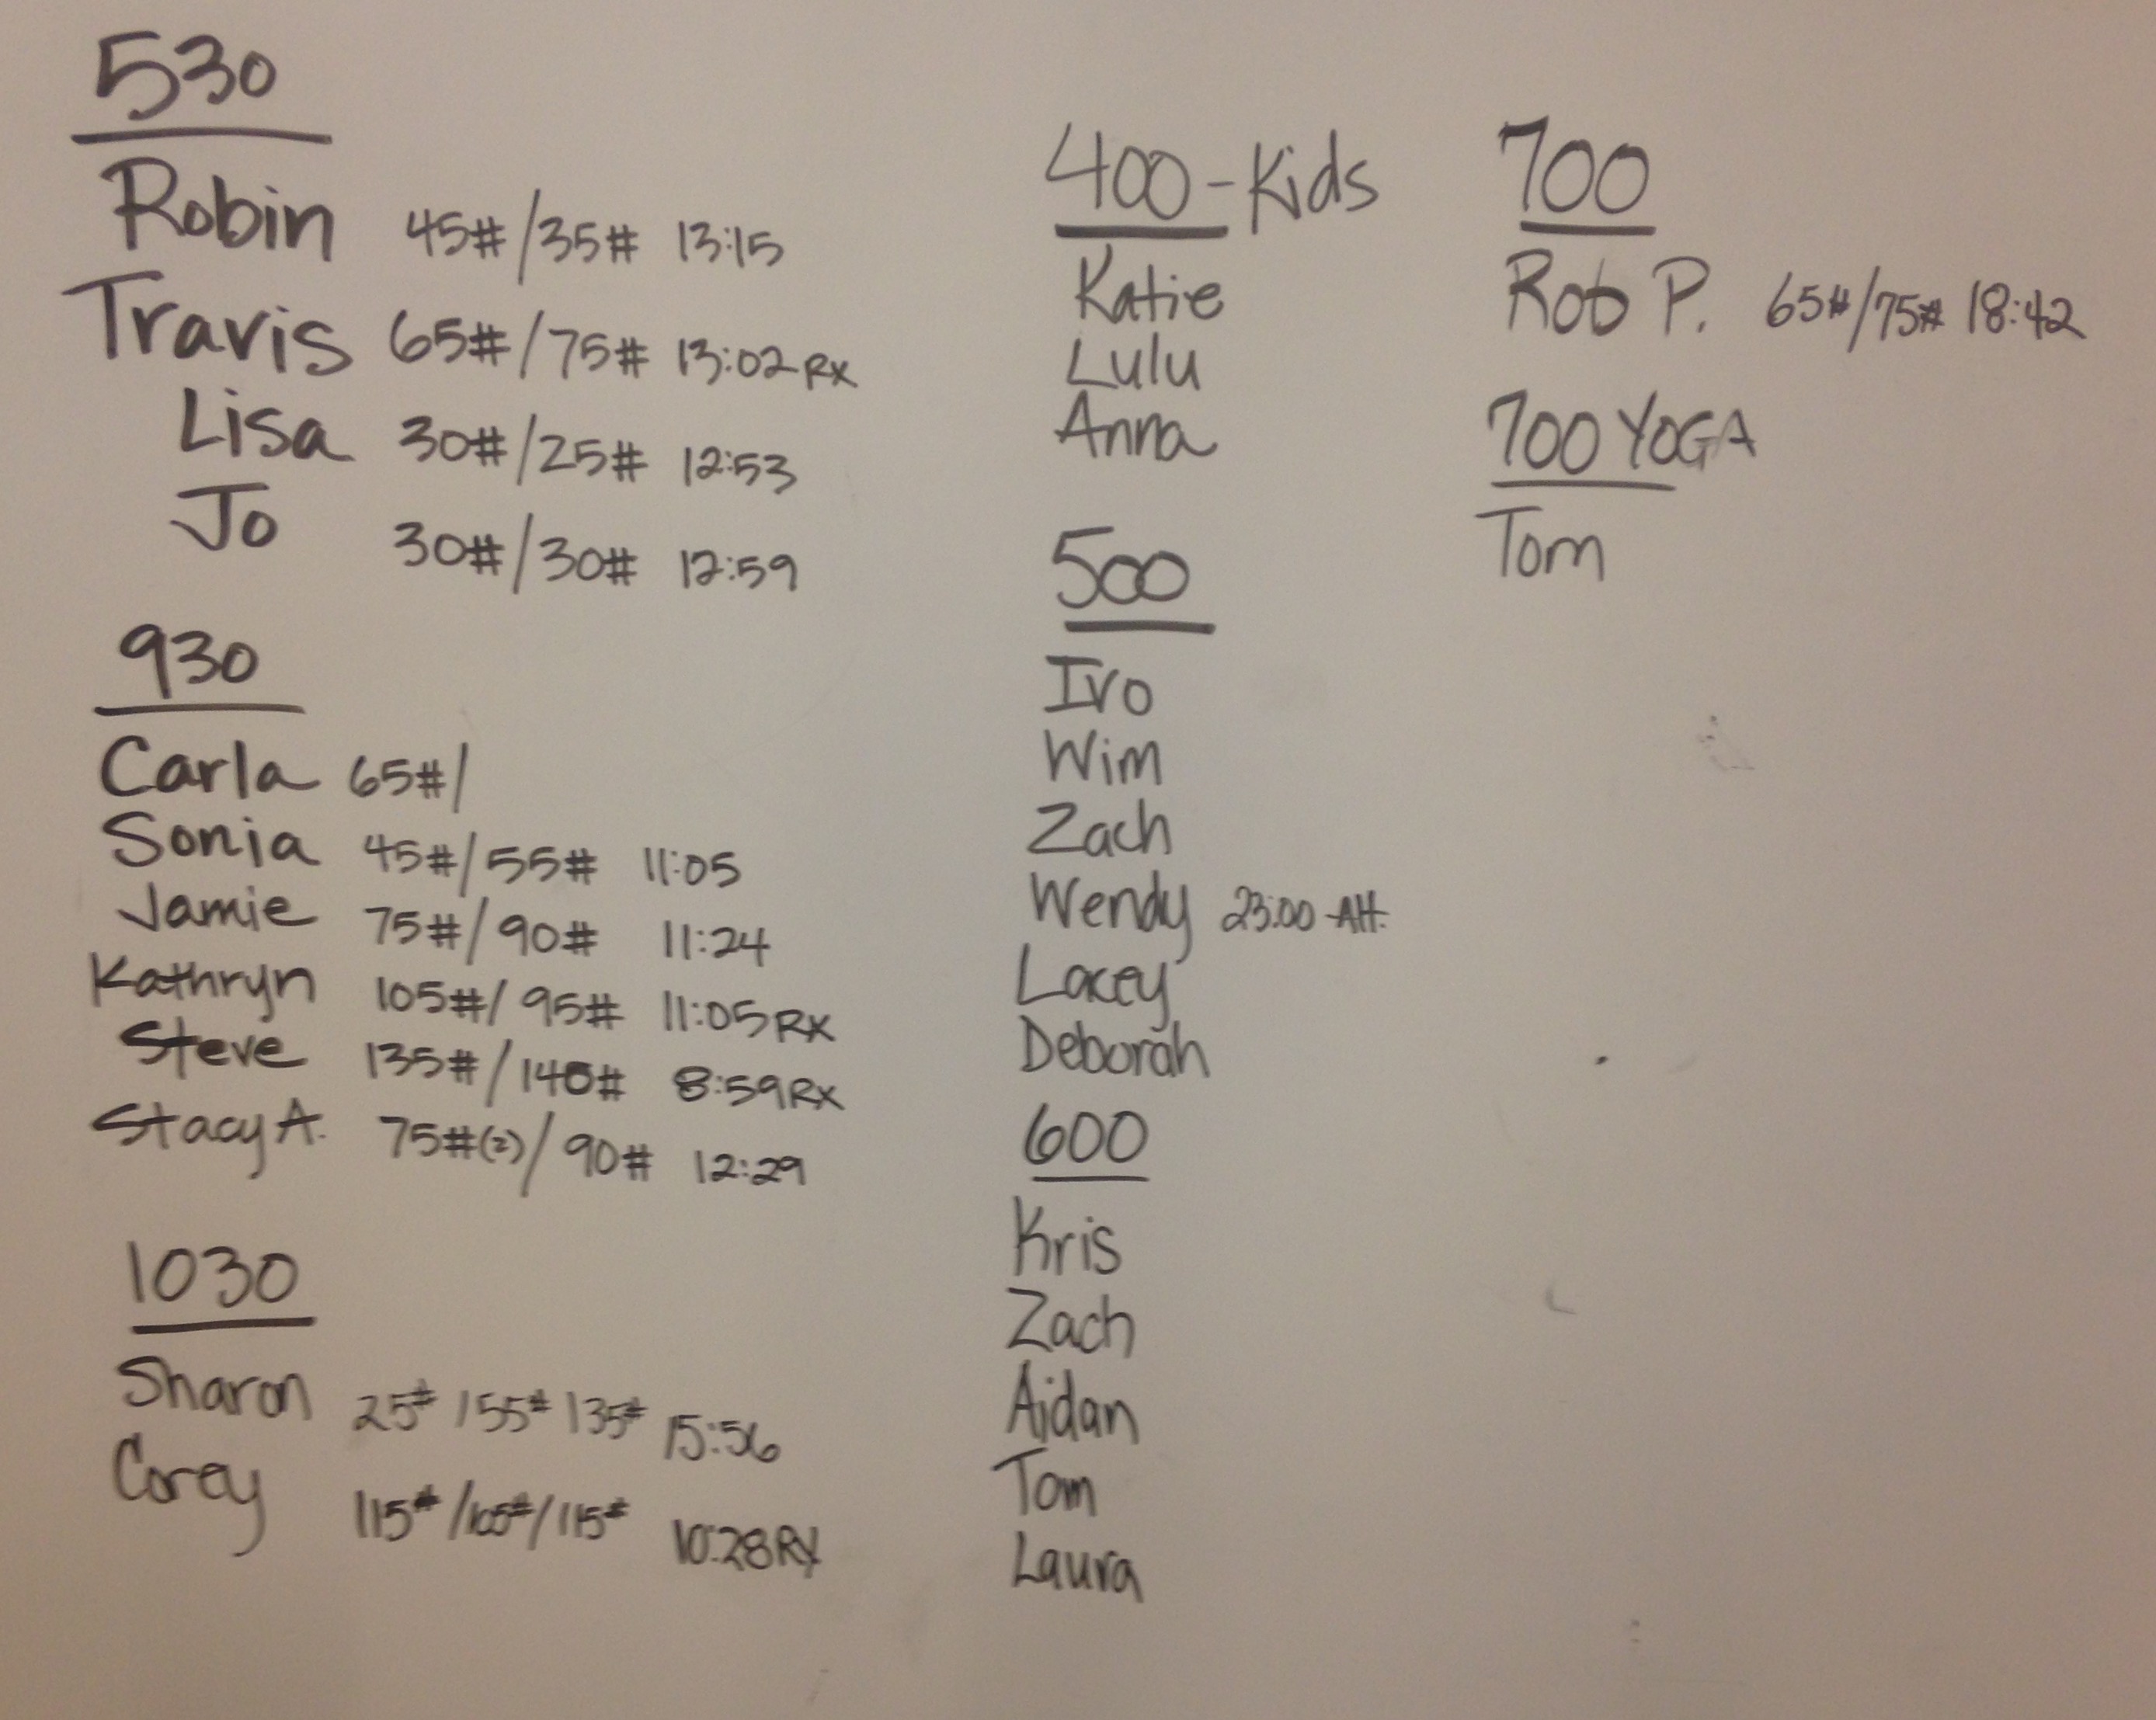 530
Robin 45#/35# 13:15
Travis 65#/75# 13:02 RX
Lisa 30#/25# 12:53
Jo 30#/30# 12:59
930
Carla 65#/
Sonia 45#/55# 11:05
Jamie 75#/90# 11:24
Kathryn 105#/95# 11:05 RX
Steve 135#/140# 8:59 RX
Stacy A. 75#(2)/90# 12:29
1030
Sharon 25# /55# 135# 15:56
Corey 115#/105#/115# 10:28 RX
400-Kids
Katie
Lulu
Anna
500
Ivo
Wim
Zach
Wendy 23:00 -Alt.
Lacey
Deborah
600
Kris
Zach
Aidan
Tom
Laura
700
Rob P. 65#/75# 18:42
700 YOGA
Tom